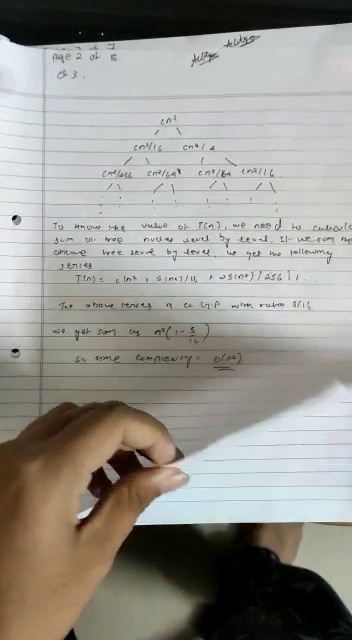 Page 2 of 5
Q3.
cn²
cn²/16 cn²/4
cn²/256 cn²/64 cn²/64 cn²/16
To know the value of T(n), we need to calculate
sum of tree nodes level by level. If we sum the
above tree level by level, we get the following
series
T(n) = c(n² + 5(n²)/16 + 25(n²)/256) +
The above series is a G.P with ratio 5/16
we get sum as n²(1 - 5/16)
So time complexity = O(n²)